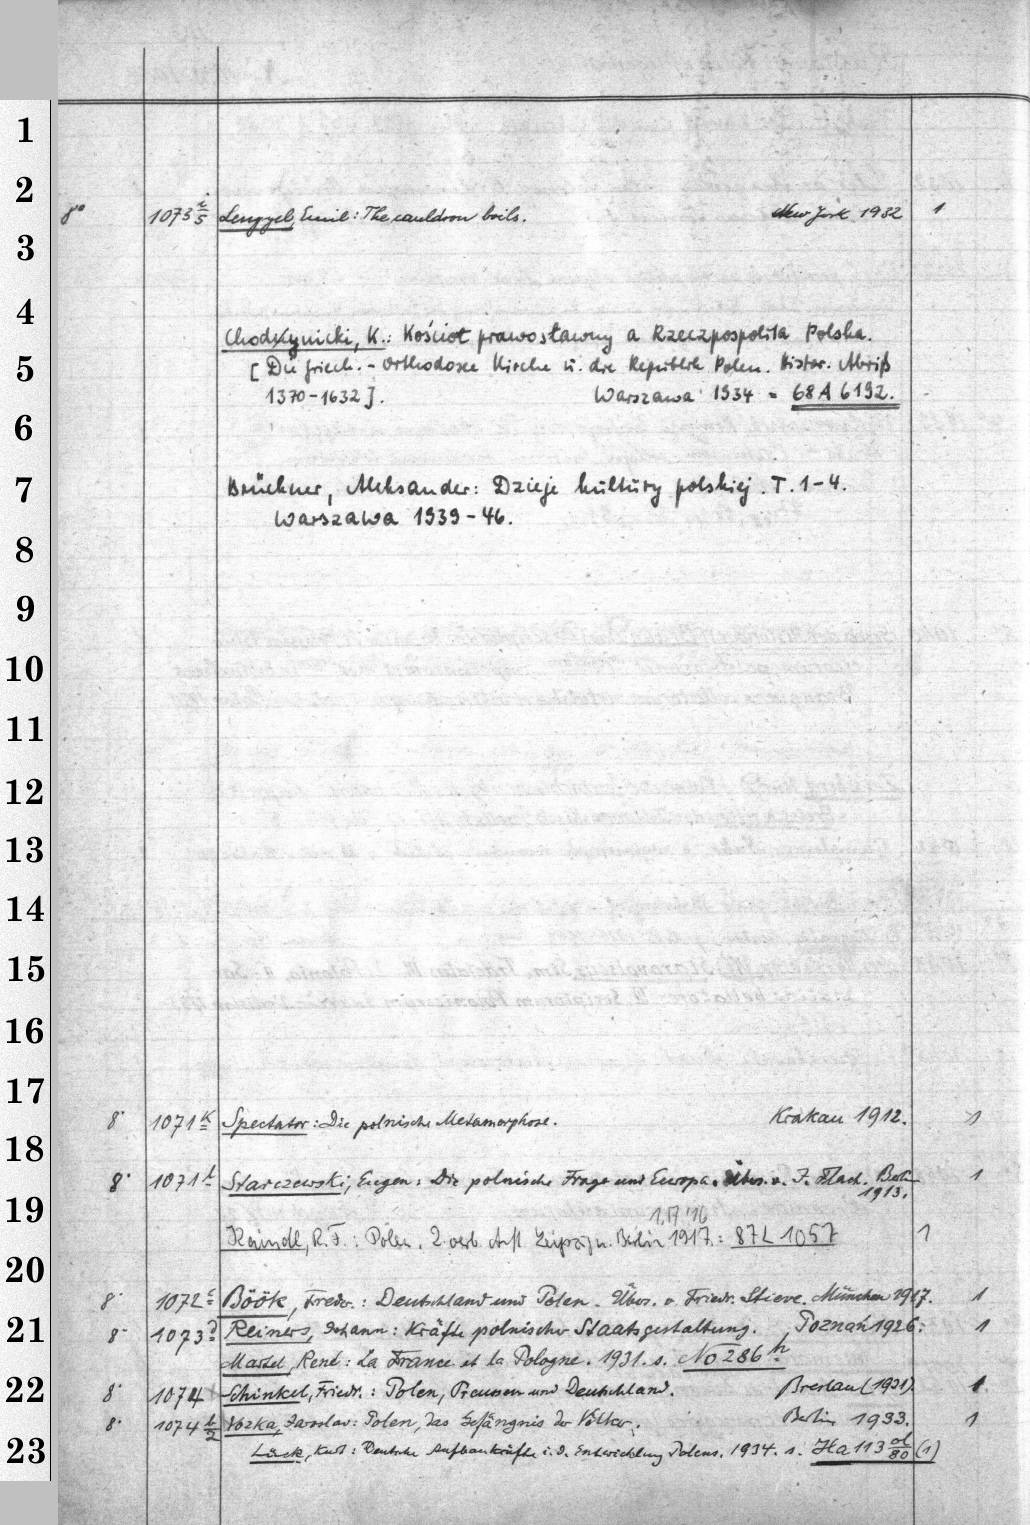 1
2
8° 1073 Lengyel, Emil: The cauldron boils. New York 1932 1
3
4
Chodynicki, K.: Kościoł prawosławny a Rzeczpospolita Polska.
5 [Die griech.-orthodoxe Kirche u. die Republik Polen. Histor. Abriß
1370-1632]. Warszawa 1934 = 68 A 6192.
6
7 Brückner, Aleksander: Dzieje kultury polskiej. T. 1-4.
Warszawa 1939-46.
8
9
10
11
12
13
14
15
16
17
8° 1071 k Spectator: Die polnische Metamorphose. Krakau 1912. 1
18
8° 1071 l Starczewski, Eugen: Die polnische Frage und Europa. Übers. v. J. Flach. Berlin 1913. 1
19
Kaindl, R. F.: Polen. 2. verb. Aufl. Leipzig u. Berlin 1917: 87 L 1057 1
20
8° 1072 c Böök, Fredr.: Deutschland und Polen. Übers. v. Friedr. Stieve. München 1917. 1
21 8° 1073 Reiners, Johann: Kräfte polnischer Staatsgestaltung. Poznań 1926. 1
Martel, René: La France et la Pologne. 1931. s. No 286 h
22 8° 1074 Schinkel, Friedr.: Polen, Preussen und Deutschland. Breslau (1931). 1
8° 1074 Vozka, Jaroslav: Polen, das Gefängnis der Völker. Berlin 1933. 1
23 Lück, Kurt: Deutsche Aufbaukräfte i. d. Entwicklung Polens. 1934. s. Ha 113 d/80 (1)